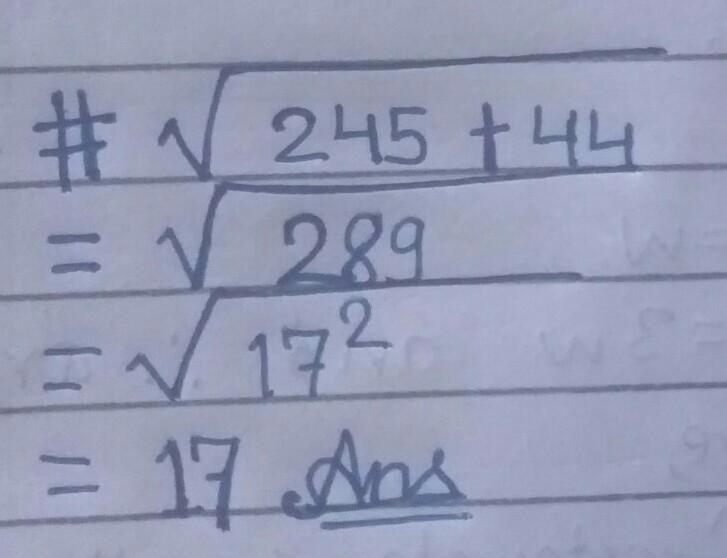 # √245 + 44
= √289
= √17²
= 17 Ans